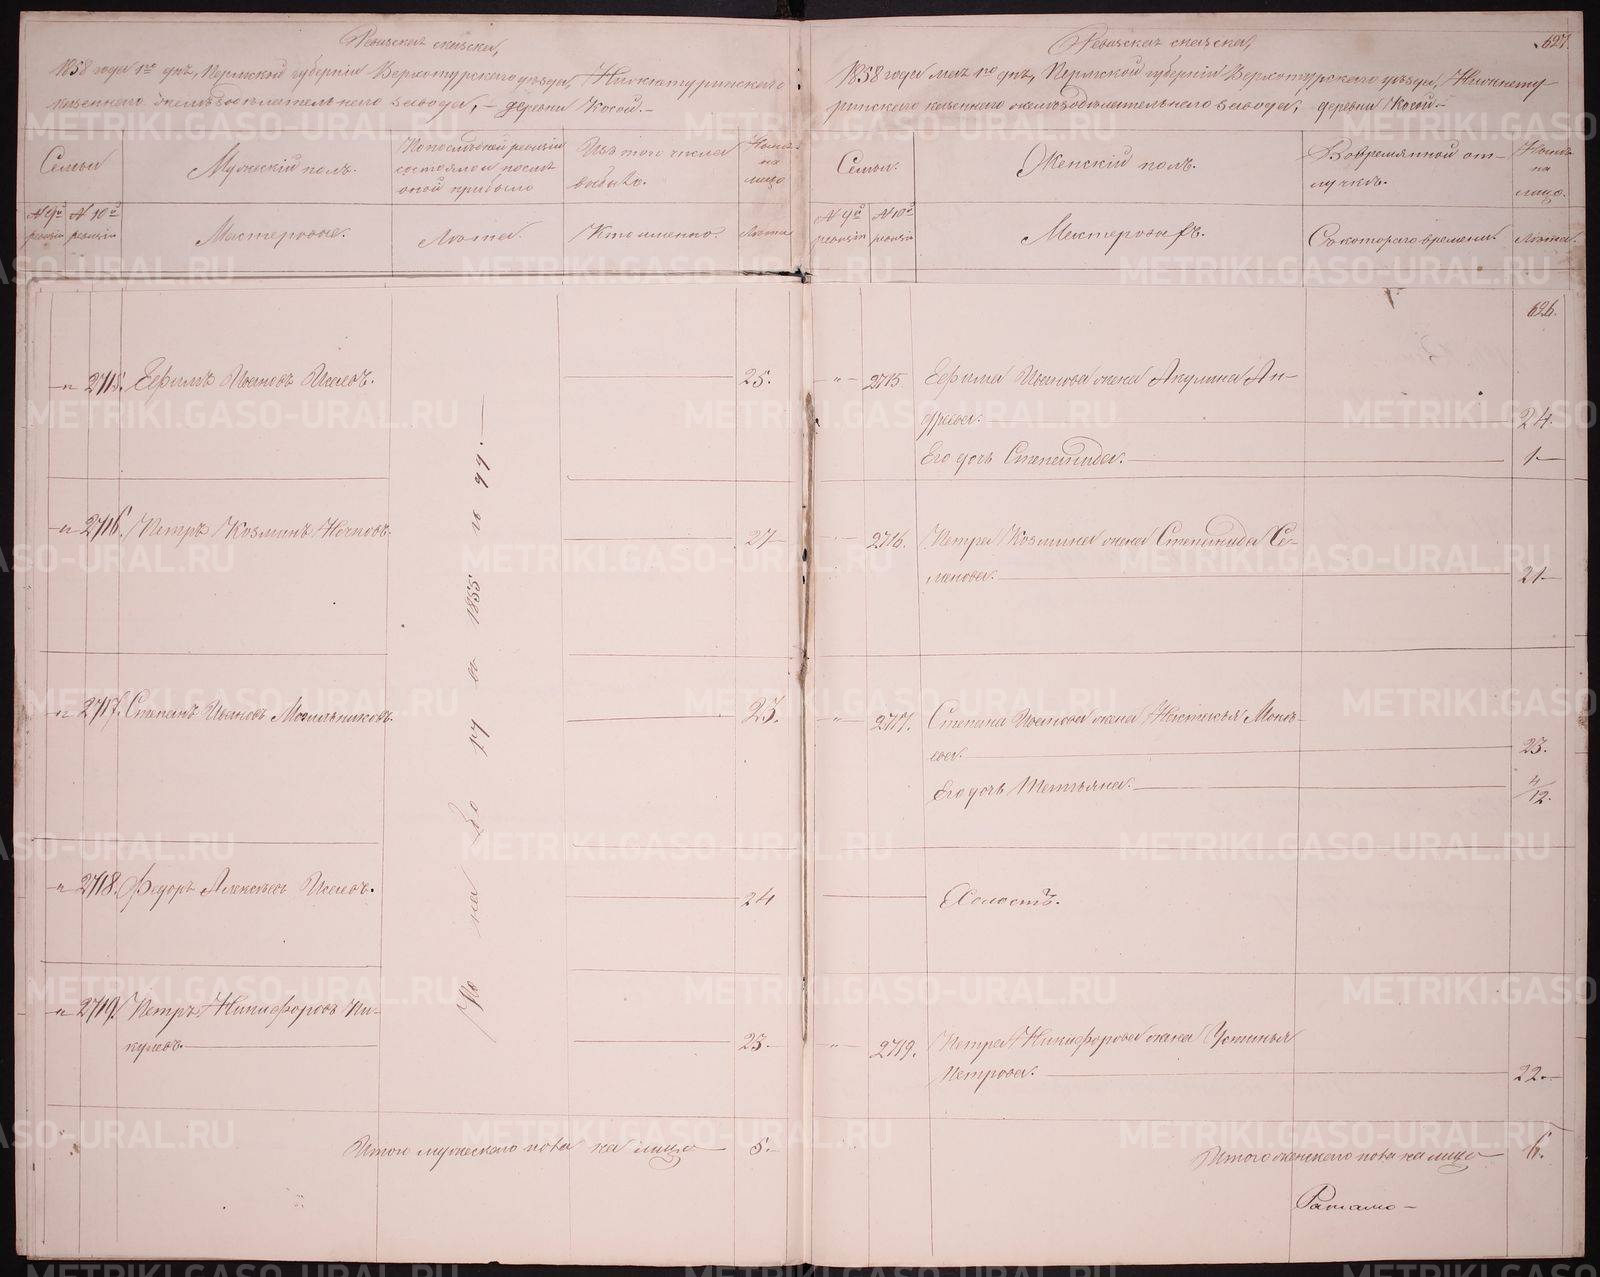 Ревизская сказка,
1858 года 1го дня, Пермской губернии Верхотурского уезда, Нижнетуринского
казеннаго железоделательнаго завода, – деревни Косой. –
Семьи
Мужеский полъ.
По последней ревизии состояло и после оной прибыло
Изъ того числа выбыло.
Ныне на лицо
№ 9й ревизии
№ 10й ревизии
Мастеровые.
Лета.
Кто именно.
Лета
– " – 2715. Ефимъ Ивановъ Исаевъ. 25.
– " – 2716. Петръ Козминъ 27
– " – 2717. Степанъ Ивановъ Мотыльниковъ. 23.
– " – 2718. Федоръ Алексеевъ Исаевъ. 24
– " – 2719. Петръ Никифоровъ Ки-
кулевъ. 23.
1855
Итого мужескаго пола на лицо 5. –
Ревизская сказка,
627.
1858 года мая 1го дня, Пермской губернии Верхотурского уезда, Нижнету-
ринскаго казеннаго железоделательнаго завода, деревни Косой. –
Семьи.
Женский полъ.
Во временной от-
лучке.
Ныне на лицо.
№ 9й ревизии
№ 10й ревизии
Мастеровахъ.
Съ котораго времени.
Лета.
626.
– " – 2715. Ефима Иванова жена Акулина Ан-
дреева. 24.
Его дочь Степанида. 1
2716. Петра Козмина жена Степанида Се-
менова. 21
– " – 2717. Степана Иванова жена Настасья Моке-
ева. 23.
Его дочь Татьяна. 4/12.
Холостъ.
– " – 2719. Петра Никифорова жена Устинья
Петрова. 22.
Итого женскаго пола на лицо 6.